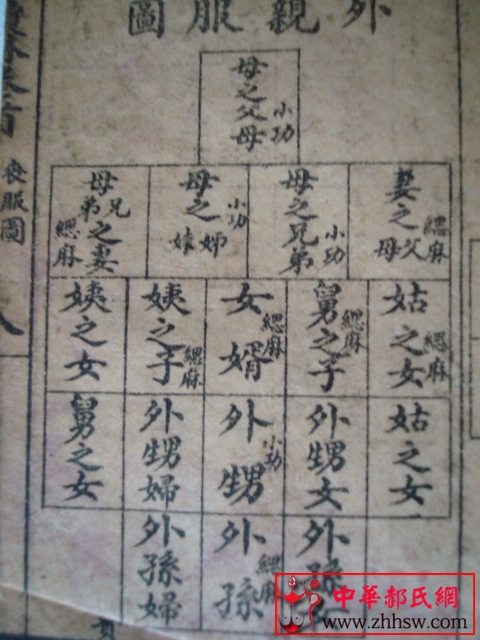 外親服圖
母之父母 小功
妻之父母 緦麻
母之兄弟 小功
母之姊妹 小功
母兄弟之妻 緦麻
姑之女 緦麻
舅之子 緦麻
女婿 緦麻
姨之子 緦麻
姨之女
姑之女
外甥女
外甥 小功
外甥婦
舅之女
外孫
外孫 緦麻
外孫婦
喪服圖
中華郝氏網
www.zhhsw.com